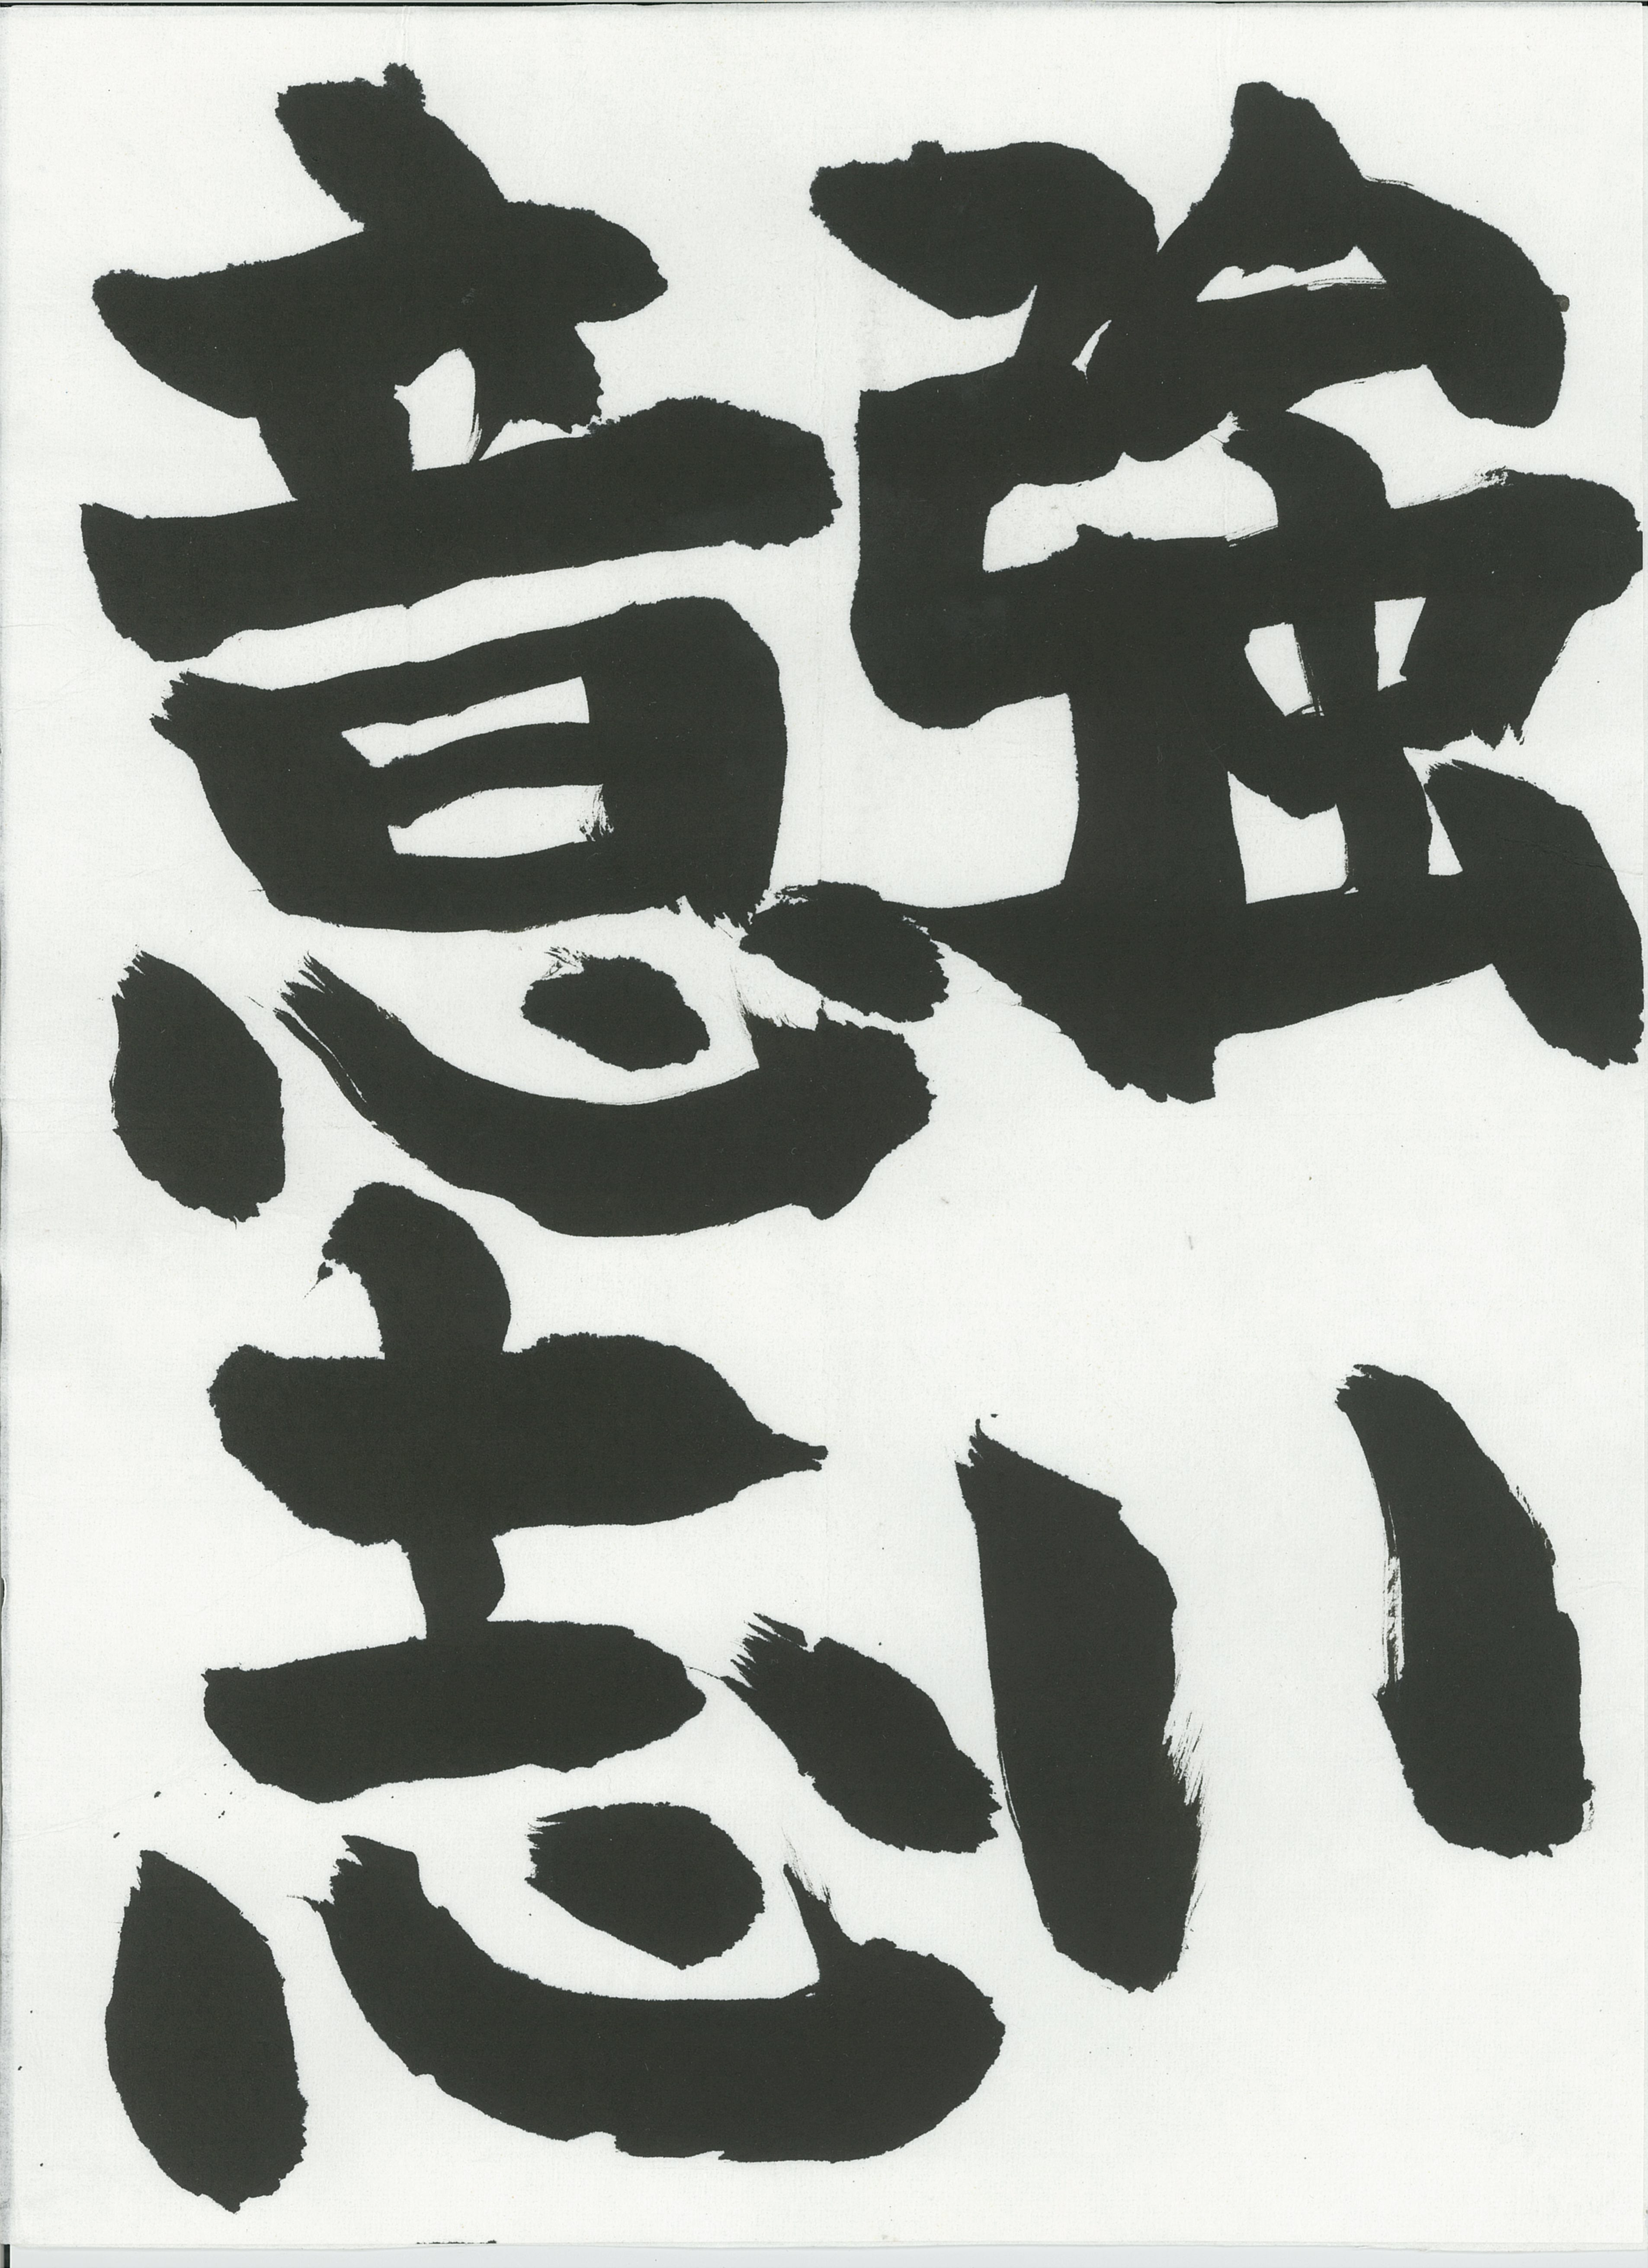 強い
意志